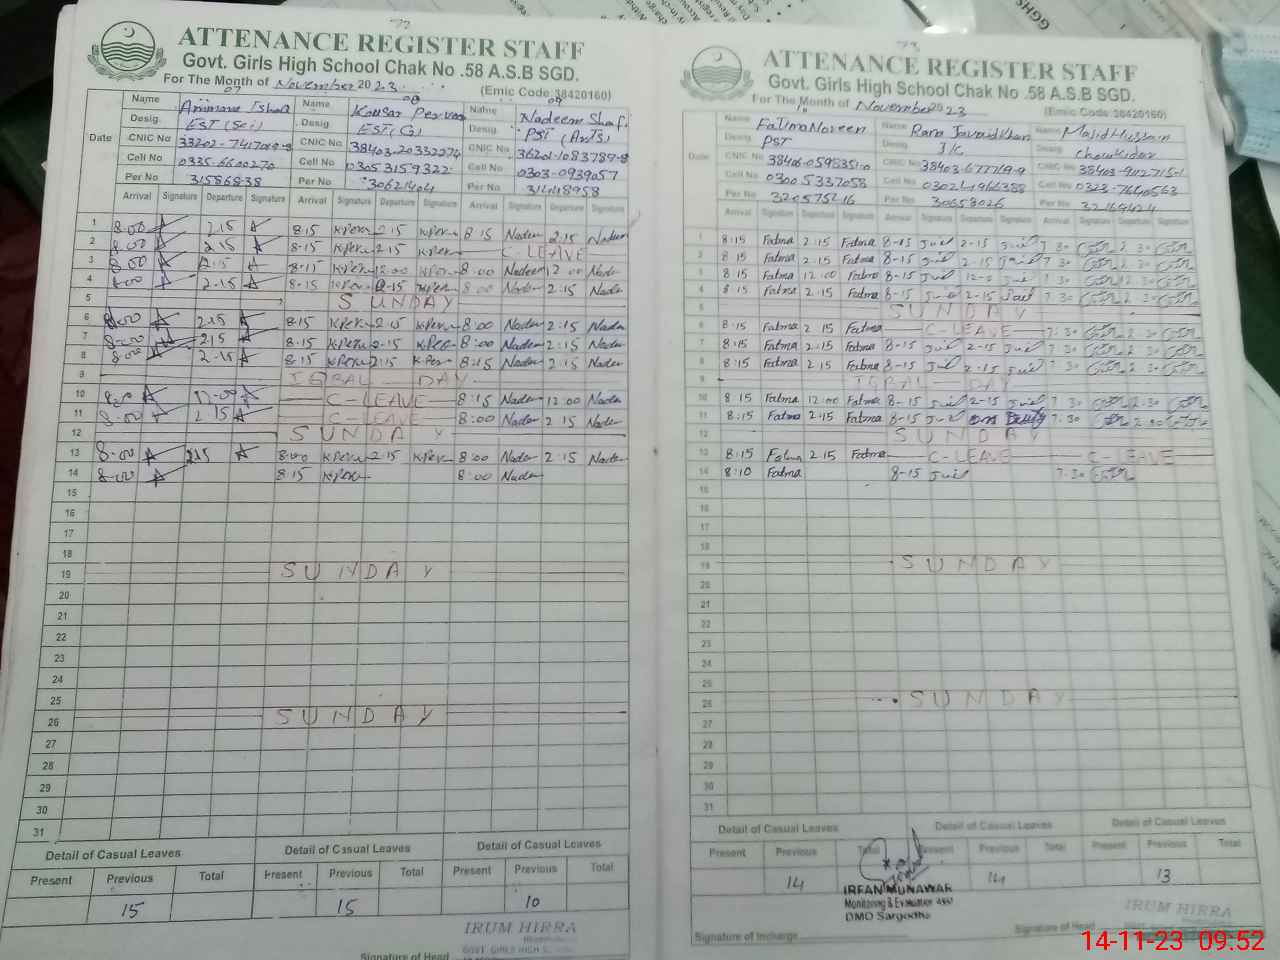 72
ATTENANCE REGISTER STAFF
Govt. Girls High School Chak No .58 A.S.B SGD.
For The Month of November 2023 (Emic Code:38420160)
07 08 09
Name Name Kausar Perveen Name Nadeem Shafi
Desig. EST (Sci) Desig. EST(G) Desig. PST (Arts)
Date CNIC No CNIC No 38403-20332274 CNIC No
Cell No 0335-6600270 Cell No 03053159322 Cell No 0303-0939057
Per No 31586838 Per No 30621404 Per No
Arrival Signature Departure Signature Arrival Signature Departure Signature Arrival Signature Departure Signature
1 8.00 2.15 8:15 K.Perv 2:15 K.Perv 8:15 Nadeem 2:15 Nadeem
2 8.00 2.15 8.15 K.Perv 2.15 K.Perv C-LEAVE
3 8.00 2.15 8.15 K.Perv 12.00 K.Perv 8:00 Nadeem 12:00 Nadeem
4 8.00 2.15 8.15 K.Perv 2.15 K.Perv 8:00 Nadeem 2:15 Nadeem
5 SUNDAY
6 8.00 2.15 8.15 K.Perv 2.15 K.Perv 8:00 Nadeem 2:15 Nadeem
7 8.00 2.15 8.15 K.Perv 2.15 K.Perv 8:00 Nadeem 2:15 Nadeem
8 8.00 2.15 8.15 K.Perv 2.15 K.Perv 8:15 Nadeem 2:15 Nadeem
9 IQBAL DAY
10 8.00 12.00 C-LEAVE 8:15 Nadeem 12:00 Nadeem
11 8.00 2.15 C-LEAVE 8:00 Nadeem 2:15 Nadeem
12 SUNDAY
13 8.00 2.15 8.00 K.Perv 2.15 K.Perv 8:00 Nadeem 2:15 Nadeem
14 8.00 8.15 K.Perv 8:00 Nadeem
15
16
17
18
19 SUNDAY
20
21
22
23
24
25
26 SUNDAY
27
28
29
30
31
Detail of Casual Leaves Detail of Casual Leaves Detail of Casual Leaves
Present Previous Total Present Previous Total Present Previous Total
15 15 10
IRUM HIRRA
GOVT. GIRLS HIGH S
Signature of Head
73
ATTENANCE REGISTER STAFF
Govt. Girls High School Chak No .58 A.S.B SGD.
For The Month of November 2023 (Emic Code:38420160)
Name Fatima Noreen Name Rana Javaid Khan Name Majid Hussain
Desig. PST Desig. J.K Desig. Chowkidar
Date CNIC No CNIC No CNIC No
Cell No 03005337058 Cell No 03024966388 Cell No 0323-7640563
Per No 32057546 Per No 30658026 Per No 32169424
Arrival Signature Departure Signature Arrival Signature Departure Signature Arrival Signature Departure Signature
1 8:15 Fatma 2:15 Fatma 8-15 2-15 7.30 2.30
2 8:15 Fatma 2:15 Fatma 8-15 2-15 7.30 2.30
3 8:15 Fatma 12:00 Fatma 8-15 7.30 2.30
4 8:15 Fatma 2:15 Fatma 8-15 2-15 7.30 2.30
5 SUNDAY
6 8:15 Fatma 2:15 Fatma C-LEAVE 7.30 2.30
7 8:15 Fatma 2:15 Fatma 8-15 2-15 7.30 2.30
8 8:15 Fatma 2:15 Fatma 8-15 2-15 7.30 2.30
9 IQBAL DAY
10 8:15 Fatma 12:00 Fatma 8-15 2-15 7.30 2.30
11 8:15 Fatma 2:15 Fatma 8-15 on Duty 7.30 2.30
12 SUNDAY
13 8:15 Fatma 2:15 Fatma C-LEAVE C-LEAVE
14 8:10 Fatma 8-15 7.30
15
16
17
18
19 SUNDAY
20
21
22
23
24
25
26 SUNDAY
27
28
29
30
31
Detail of Casual Leaves Detail of Casual Leaves Detail of Casual Leaves
Present Previous Total Present Previous Total Present Previous Total
14 14 13
IRFAN MUNAWAR
Monitoring & Evaluation
DMO Sargodha
IRUM HIRRA
Signature of Incharge Signature of Head
GGHS
14-11-23 09:52